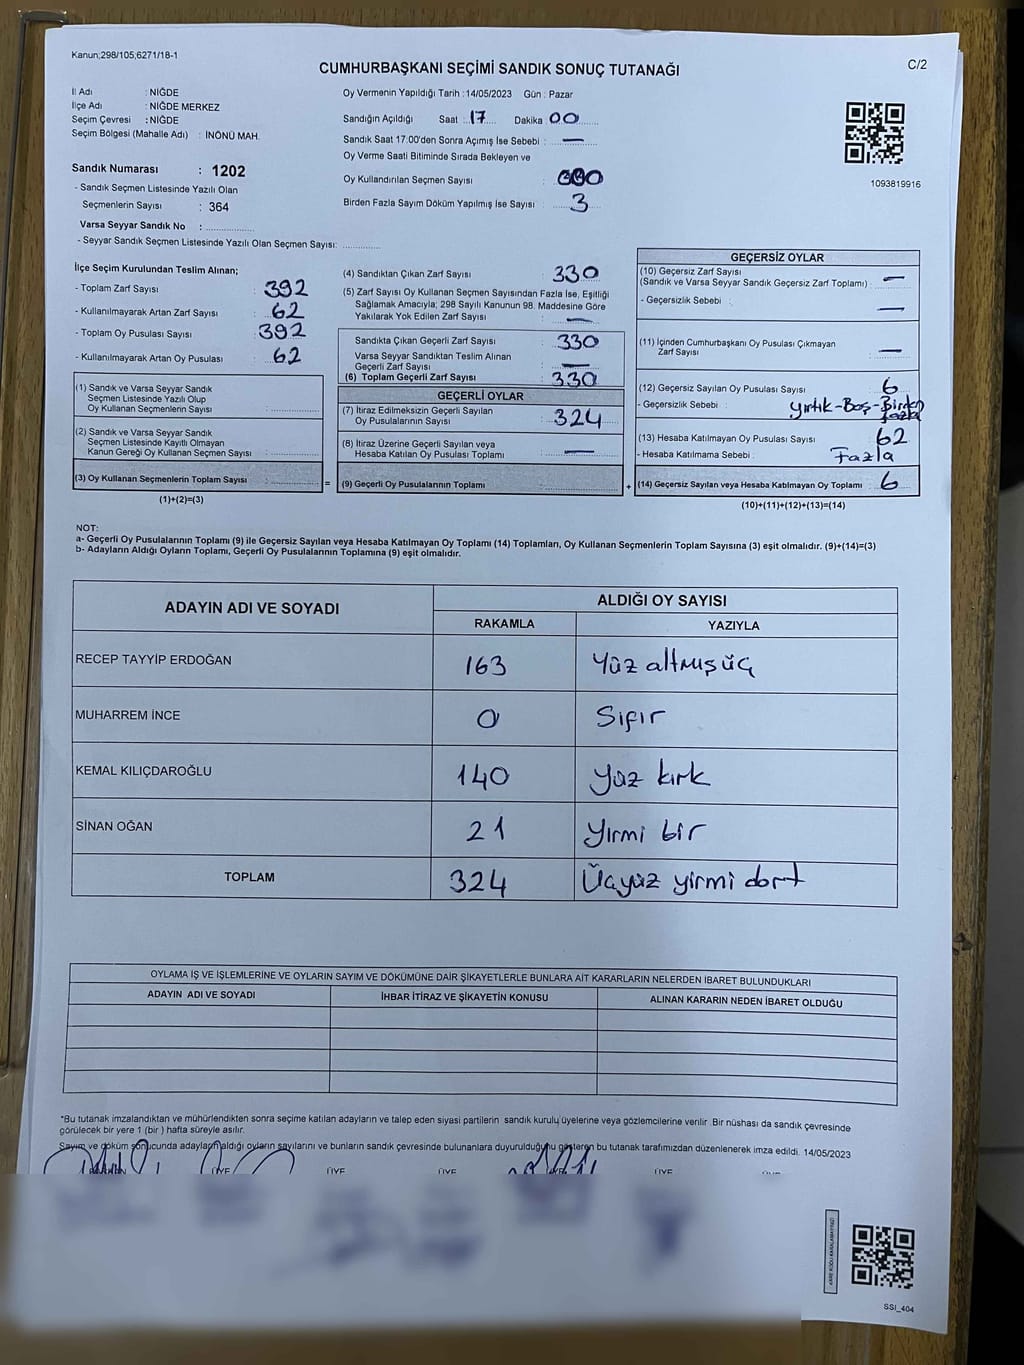 Kanun;298/105;6271/18-1
C/2
CUMHURBAŞKANI SEÇİMİ SANDIK SONUÇ TUTANAĞI
İl Adı : NİĞDE
İlçe Adı : NİĞDE MERKEZ
Seçim Çevresi : NİĞDE
Seçim Bölgesi (Mahalle Adı) : İNÖNÜ MAH.
Sandık Numarası : 1202
- Sandık Seçmen Listesinde Yazılı Olan
Seçmenlerin Sayısı : 364
Varsa Seyyar Sandık No :
- Seyyar Sandık Seçmen Listesinde Yazılı Olan Seçmen Sayısı:
Oy Vermenin Yapıldığı Tarih :14/05/2023 Gün : Pazar
Sandığın Açıldığı Saat : 17 Dakika : 00
Sandık Saat 17.00'den Sonra Açımış İse Sebebi : —
Oy Verme Saati Bitiminde Sırada Bekleyen ve
Oy Kullandırılan Seçmen Sayısı :
Birden Fazla Sayım Döküm Yapılmış İse Sayısı : 3
1093819916
İlçe Seçim Kurulundan Teslim Alınan;
- Toplam Zarf Sayısı : 392
- Kullanılmayarak Artan Zarf Sayısı : 62
- Toplam Oy Pusulası Sayısı : 392
- Kullanılmayarak Artan Oy Pusulası : 62
(1) Sandık ve Varsa Seyyar Sandık
Seçmen Listesinde Yazılı Olup
Oy Kullanan Seçmenlerin Sayısı :
(2) Sandık ve Varsa Seyyar Sandık
Seçmen Listesinde Kayıtlı Olmayan
Kanun Gereği Oy Kullanan Seçmen Sayısı :
(3) Oy Kullanan Seçmenlerin Toplam Sayısı :
(1)+(2)=(3)
=
(4) Sandıktan Çıkan Zarf Sayısı : 330
(5) Zarf Sayısı Oy Kullanan Seçmen Sayısından Fazla İse, Eşitliği
Sağlamak Amacıyla; 298 Sayılı Kanunun 98. Maddesine Göre
Yakılarak Yok Edilen Zarf Sayısı : —
Sandıkta Çıkan Geçerli Zarf Sayısı : 330
Varsa Seyyar Sandıktan Teslim Alınan
Geçerli Zarf Sayısı : —
(6) Toplam Geçerli Zarf Sayısı : 330
GEÇERLİ OYLAR
(7) İtiraz Edilmeksizin Geçerli Sayılan
Oy Pusulasının Sayısı : 324
(8) İtiraz Üzerine Geçerli Sayılan veya
Hesaba Katılan Oy Pusulası Toplamı : —
(9) Geçerli Oy Pusulalarının Toplamı :
+
GEÇERSİZ OYLAR
(10) Geçersiz Zarf Sayısı
(Sandık ve Varsa Seyyar Sandık Geçersiz Zarf Toplamı) : —
- Geçersizlik Sebebi : —
(11) İçinden Cumhurbaşkanı Oy Pusulası Çıkmayan
Zarf Sayısı : —
(12) Geçersiz Sayılan Oy Pusulası Sayısı : 6
- Geçersizlik Sebebi : Yırtık-Boş-Birden
fazla
(13) Hesaba Katılmayan Oy Pusulası Sayısı : 62
- Hesaba Katılmama Sebebi : Fazla
(14) Geçersiz Sayılan veya Hesaba Katılmayan Oy Toplamı : 6
(10)+(11)+(12)+(13)=(14)
NOT:
a- Geçerli Oy Pusulalarının Toplamı (9) ile Geçersiz Sayılan veya Hesaba Katılmayan Oy Toplamı (14) Toplamları, Oy Kullanan Seçmenlerin Toplam Sayısına (3) eşit olmalıdır. (9)+(14)=(3)
b- Adayların Aldığı Oyların Toplamı, Geçerli Oy Pusulalarının Toplamına (9) eşit olmalıdır.
ADAYIN ADI VE SOYADI
ALDIĞI OY SAYISI
RAKAMLA YAZIYLA
RECEP TAYYİP ERDOĞAN 163 Yüz altmış üç
MUHARREM İNCE 0 Sıfır
KEMAL KILIÇDAROĞLU 140 yüz kırk
SİNAN OĞAN 21 yirmi bir
TOPLAM 324 Üçyüz yirmi dört
OYLAMA İŞ VE İŞLEMLERİNE VE OYLARIN SAYIM VE DÖKÜMÜNE DAİR ŞİKAYETLERLE BUNLARA AİT KARARLARIN NELERDEN İBARET BULUNDUKLARI
ADAYIN ADI VE SOYADI İHBAR İTİRAZ VE ŞİKAYETİN KONUSU ALINAN KARARIN NEDEN İBARET OLDUĞU
*Bu tutanak imzalandıktan ve mühürlendikten sonra seçime katılan adayların ve talep eden siyasi partilerin sandık kurulu üyelerine veya gözlemcilerine verilir. Bir nüshası da sandık çevresinde
görülecek bir yere 1 (bir ) hafta süreyle asılır.
Sayım ve döküm sonucunda adayların aldığı oyların sayılarını ve bunların sandık çevresinde bulunanlara duyurulduğunu gösteren bu tutanak tarafımızdan düzenlenerek imza edildi. 14/05/2023
ÜYE ÜYE ÜYE ÜYE
SSI_404